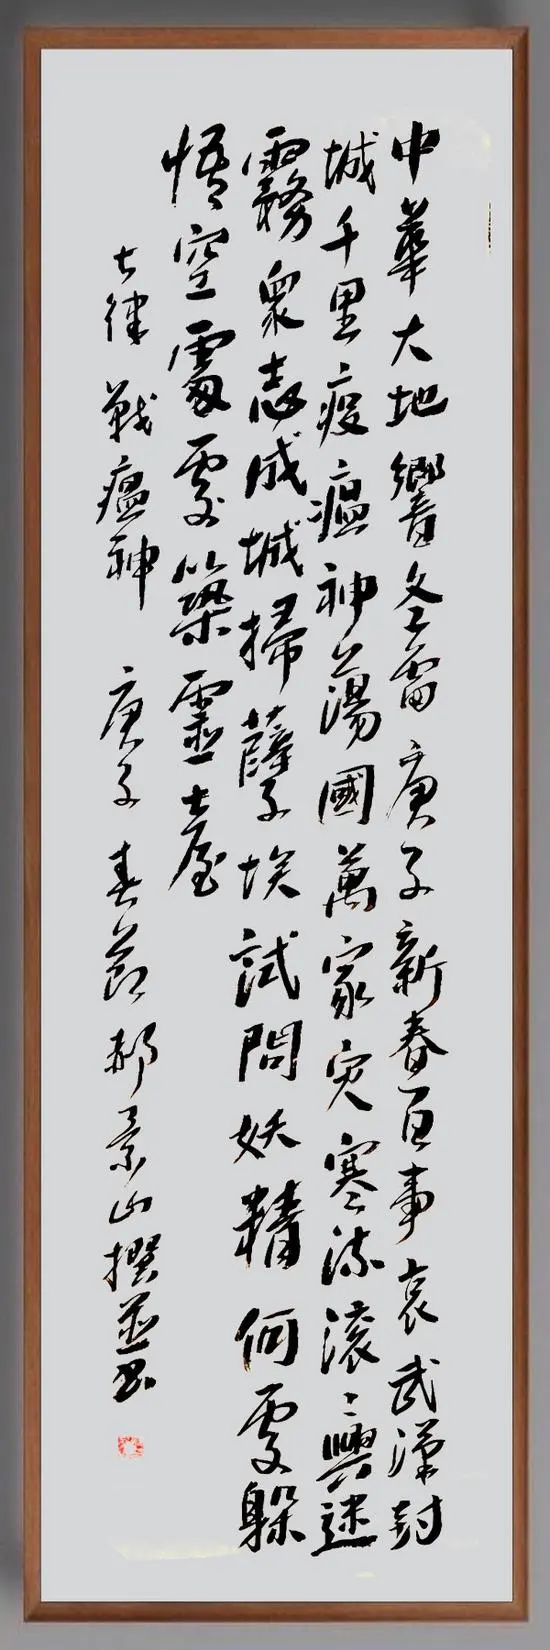 中華大地響冬雷庚子新春百事哀武漢封
城千里疫瘟神蕩國萬家灾寒流滾〻興迷
霧衆志成城掃孽埃試問妖精何處躲
悟空處處築靈臺
七律 戰瘟神 庚子春節郝景山撰並書